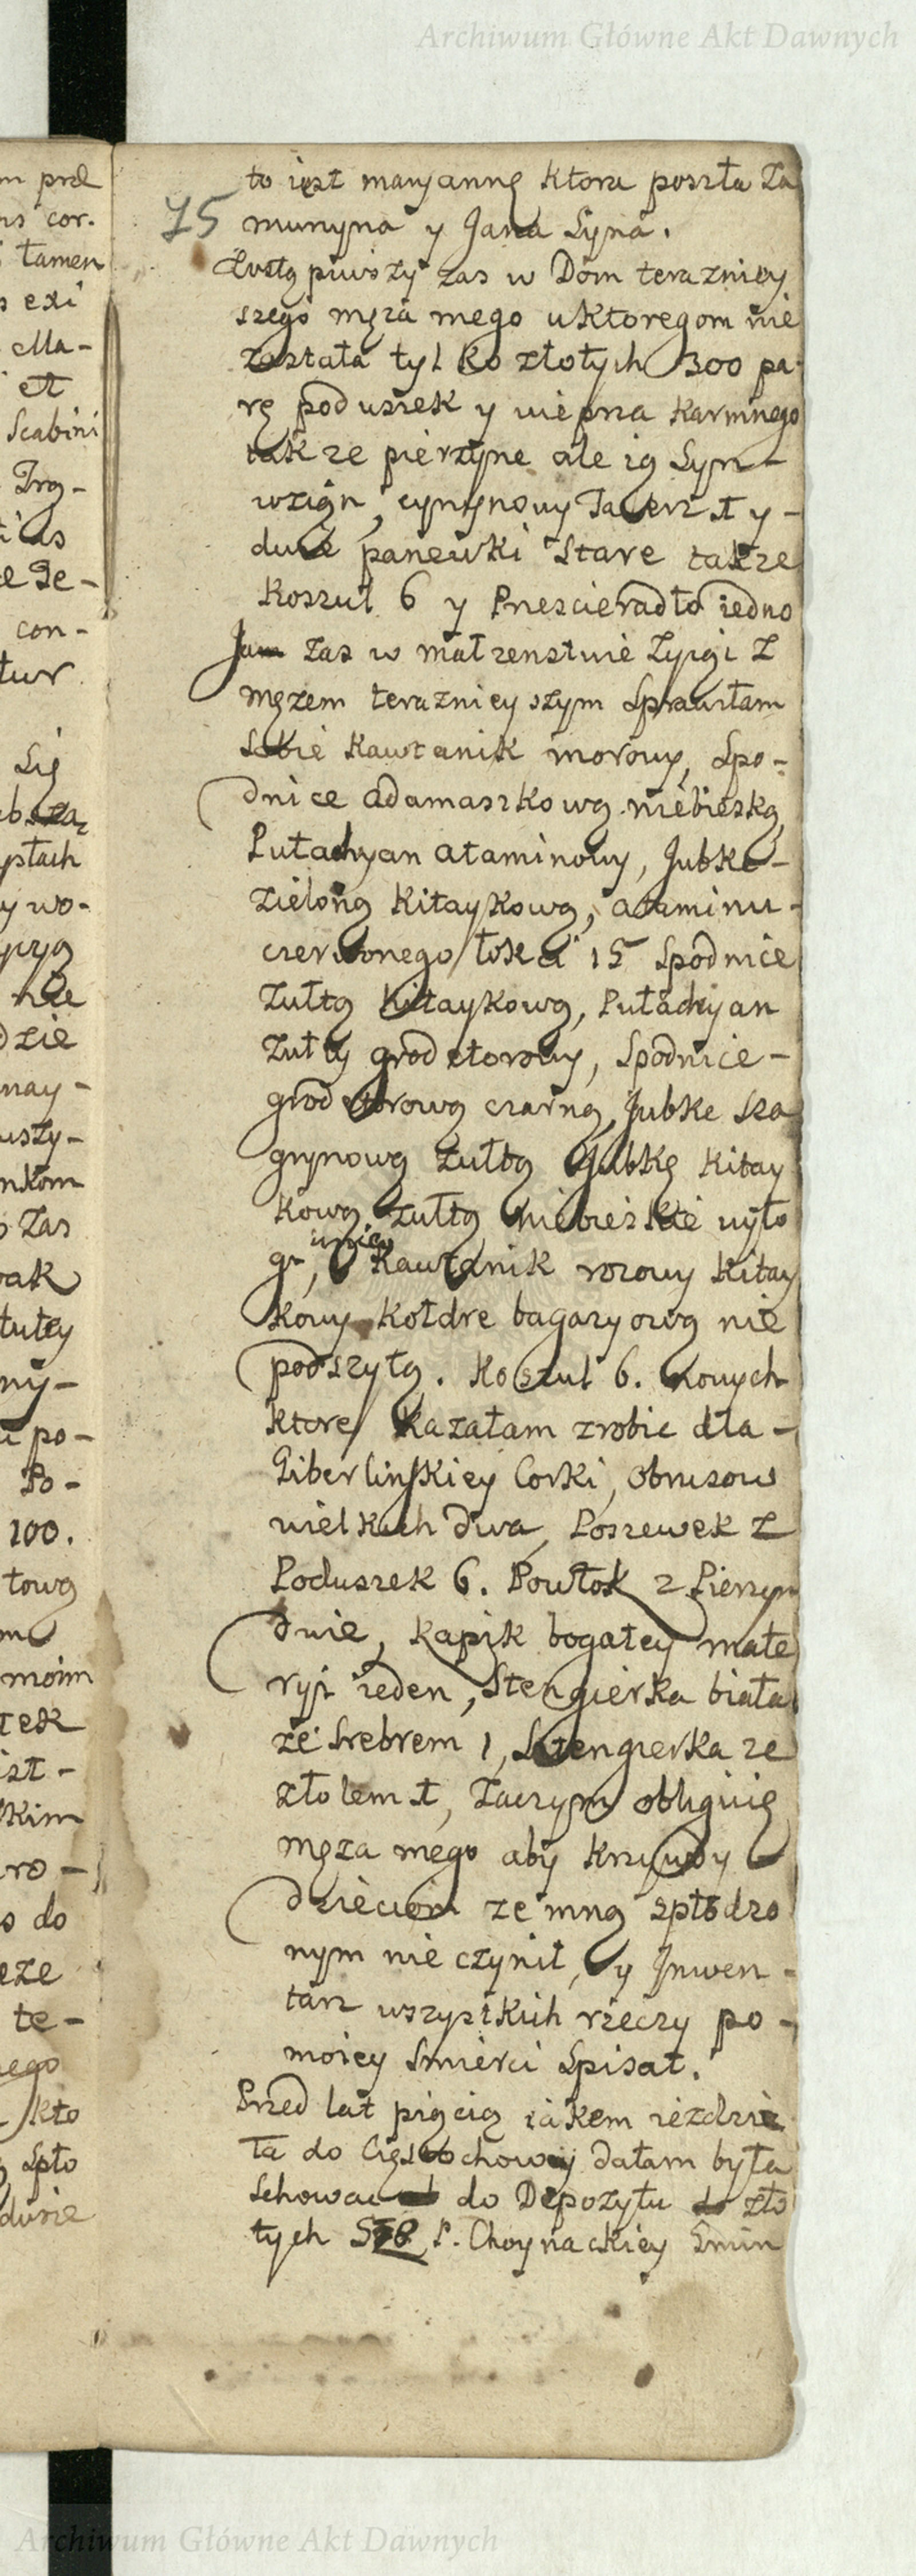 Archiwum Główne Akt Dawnych
75
to iest maryannę ktora poszła za
munyna y Jana Syna.
zas w Dom terazniey
szego męża mego u ktoregom nie
zastała tylko złotych 300 pa-
rę poduszek y wieprza karmnego
takze pierzyne ale ią Syn-
wziąn, cynynowy Talerz 1 y-
dwie panewki Stare takze
Koszul 6 y Przescieradło iedno
Jam zas w małzenstwie żyiąc z
mężem teraznieyszym Sprawiłam
Sobie kawtanik morowy, Spo-
dnice adamaszkową niebieską,
ataminowy, Jubke-
zieloną kitaykową, ataminu-
czerwonego łokci 15 Spodnice
żułtą kitaykową,
żułty grodetorowy, Spodnice-
grodetorową czarną, Jubke sza
grynową żułtą Jubkę kitay
kową żułtą niebieskie wyło
gi, Kawtanik rozowy kitay
kowy kołdre bagazyową nie
podszytą. Koszul 6. nowych
ktore kazałam zrobic dla-
Giberlinskiey Corki, obrusow
wielkich dwa, Poszewek z
Poduszek 6. Powłok z Pierzyn
dwie, kapik bogatey mate
ryi ieden, Stengierka biała
ze Srebrem 1, Sztengierka ze
złotem 1, zaczym obliguię
męża mego aby krzywdy
dzieciom ze mną spłodzo
nym nie czynił, y Inwen-
tarz wszystkich rzeczy po-
moiey Smierci Spisał.
Przed lat pięcią iakem iezdzie
ła do Częstochowy dałam była
Schowac do Depozytu zło
tych P. Choynackiey
Archiwum Główne Akt Dawnych